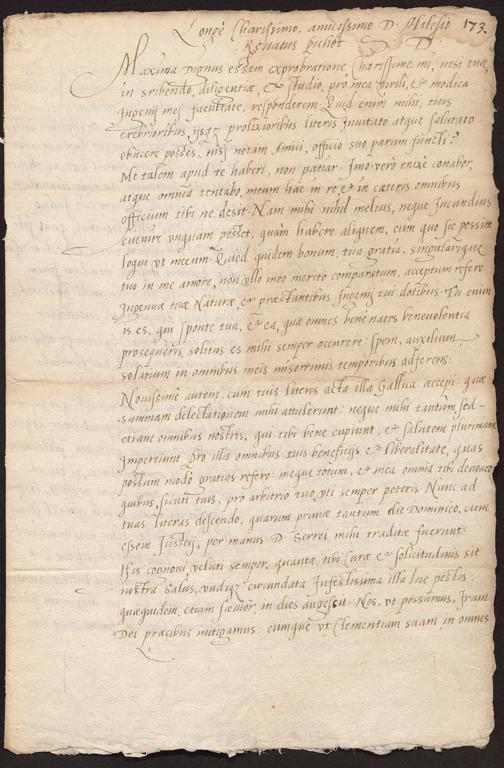 Longè Charissimo, amicissimo D. Milesio 173.
Renatus pichot D. D.
Maxima Dignus essem exprobratione Charissime mi, nisi tuæ,
in scribendo, diligentiæ, & studio, pro mea virili, & modica
Ingenij mej facultate, responderem. Quid enim mihi, tuis
crebrioribus, ijsq; prolixioribus literis Invitato atque salutato
obijcere posses, nisj notam Amici, officio suo parum functi?
Me talem apud te haberj, non patiar. Imo verò enixè conabor,
atque omnia tentabo, meum hac in re, & in cæteris omnibus
officium tibi ne desit. Nam mihi nihil melius, neque Jucundius
evenire unquam posset, quàm habere aliquem, cum quo sic possim
loqui ut mecum. Quod quidem bonum, tua gratia, singularique
tuo in me amore, non ullo meo merito comparatum, acceptum refero
Ingenuæ tuæ Naturæ, & præstantibus Ingenij tui dotibus. Tu enim
is es, qui sponte tua, & ea, qua omnes benè natos benevolentia
prosequeris, solitus es mihi semper occurrere: spem, auxilium
solatium in omnibus meis miserrimis temporibus adferens.
Novissimè autem, cum tuis literis acta illa Gallica accepi: quæ
summam delectationem mihi attulerunt: neque mihi tantùm, sed
etiam omnibus nostris, qui tibi bene cupiunt, & salutem plurimam
Impertiunt. Pro illis omnibus tuis beneficijs & liberalitate, quas
possum modò gratias refero: meque totum, & mea omnia tibi devoveo
quibus, sicuti tuis, pro arbitrio tuo uti semper poteris. Nunc ad
tuas literas descendo, quarum primæ tantum die Dominico, cum
essem Jusseij, per manus D. Serrei mihi traditæ fuerunt.
His cognovi veluti semper, quantæ tibi Curæ & solicitudinis sit
nostra salus, undiq; circundata Infestissima illa lue pestis:
quæquidem, etiam sævior, in dies augescit. Nos, ut possumus, Iram
Dei præcibus mitigamus: eumque ut Clementiam suam in omnes